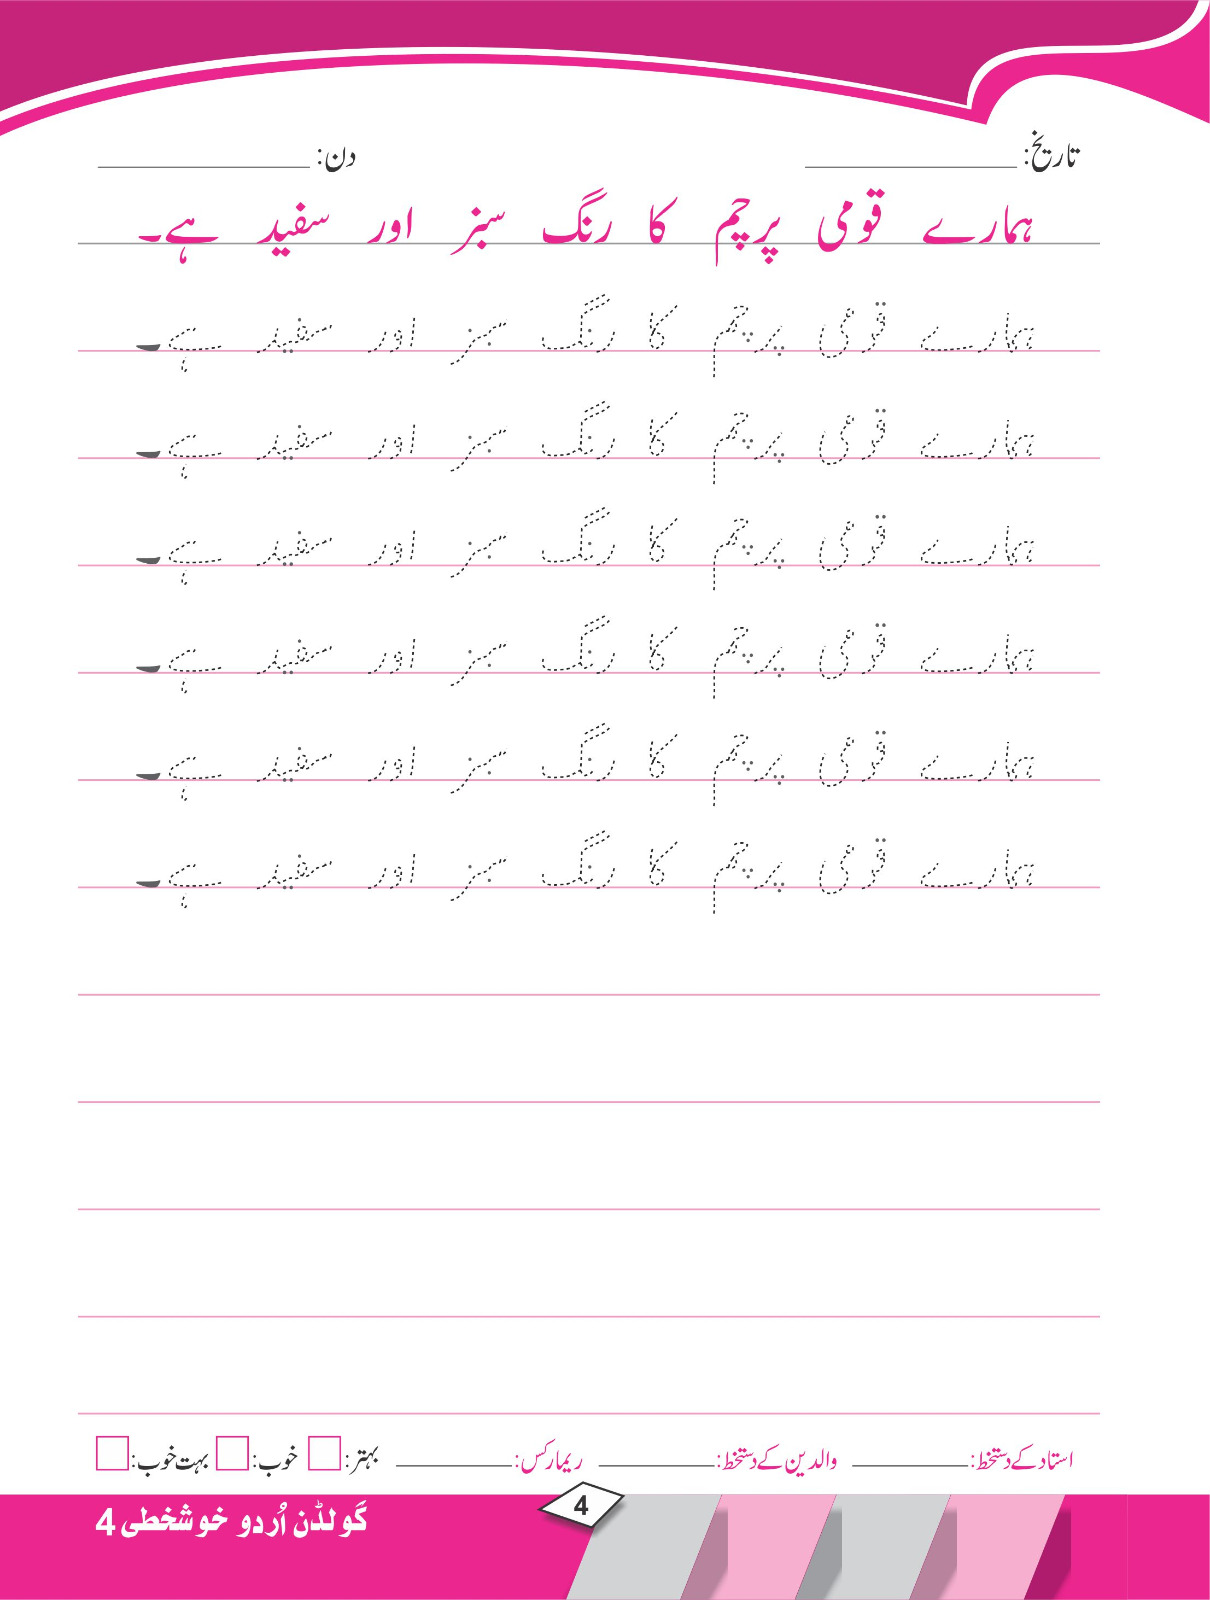 تاریخ: دن:
ہمارے قومی پرچم کا رنگ سبز اور سفید ہے۔
ہمارے قومی پرچم کا رنگ سبز اور سفید ہے۔
ہمارے قومی پرچم کا رنگ سبز اور سفید ہے۔
ہمارے قومی پرچم کا رنگ سبز اور سفید ہے۔
ہمارے قومی پرچم کا رنگ سبز اور سفید ہے۔
ہمارے قومی پرچم کا رنگ سبز اور سفید ہے۔
ہمارے قومی پرچم کا رنگ سبز اور سفید ہے۔
استاد کے دستخط: والدین کے دستخط: ریمارکس: بہتر: خوب: بہت خوب:
4
گولڈن اُردو خوشخطی 4